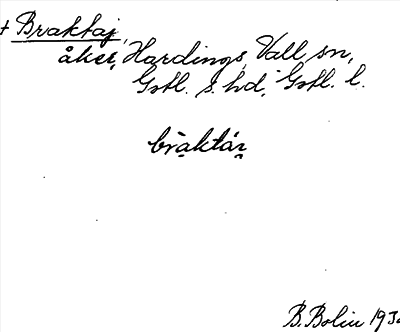 † Braktaj,
åker, Hardings, Vall sn,
Gotl. s. hd, Gotl. l.
bràktáɪ̯
B. Bolin 193